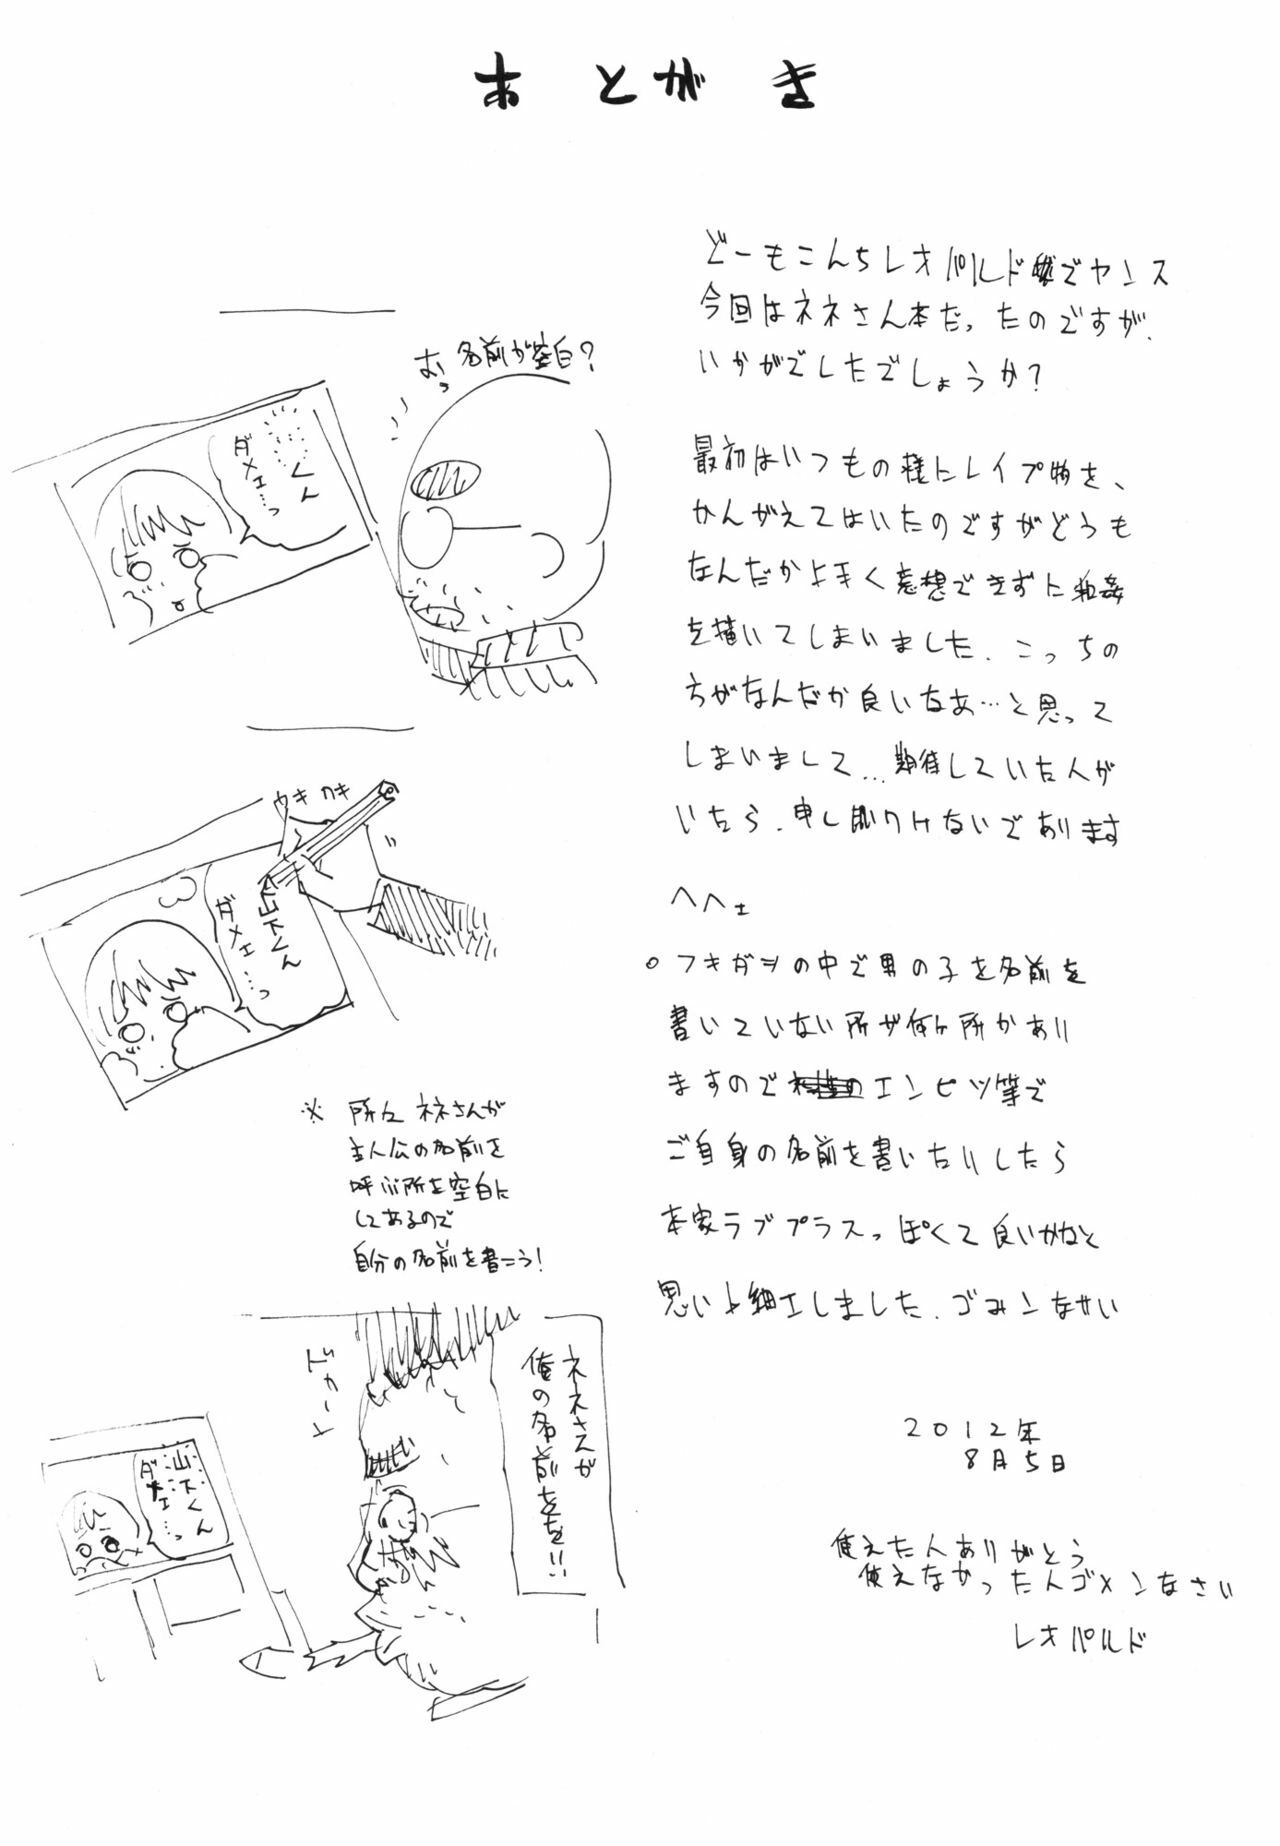 あとがき
どーもこんちレオパルドでヤンス
今回はネネさん本だったのですが、
いかがでしたでしょうか？
最初はいつもの様にレイプ物を、
かんがえてはいたのですがどうも
なんだかよく妄想できずに和姦
を描いてしまいました．こっちの
方がなんだか良いなあ…と思って
しまいまして…期待していた人が
いたら、申し訳ないであります
○フキダシの中で男の子を名前を
書いていない所が何ヶ所かあり
ますのでエンピツ等で
ご自身の名前を書いたりしたら
本家ラブプラスっぽくて良いかなと
思い小細工しました．ゴメンなサい
2012年
8月5日
使えた人ありがとう
使えなかった人ゴメンなさい
レオパルド
むっ
名前が空白？
くん
ダメェ…っ
カキカキ
山下くん
ダメェ…っ
※所々ネネさんが
主人公の名前を
呼ぶ所を空白に
してあるので
自分の名前を書こう！
ネネさんが
俺の名前をを！！
山下くん
ダメェ…っ